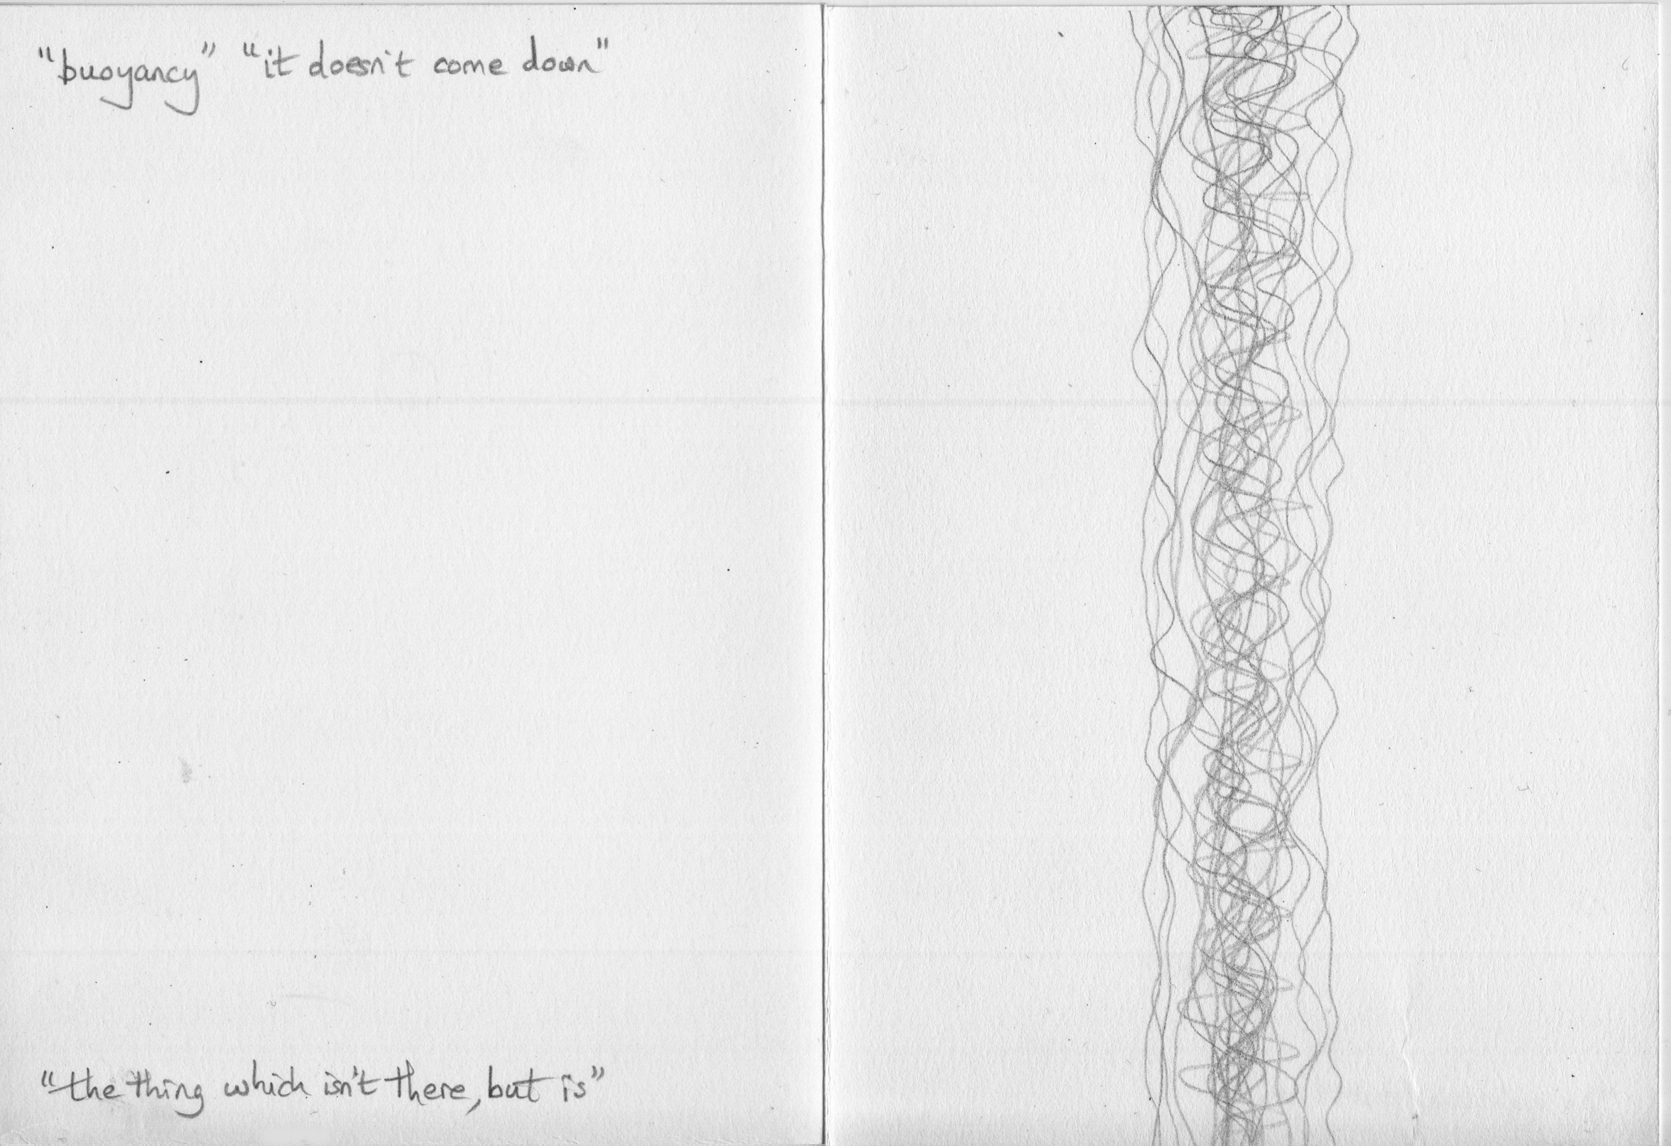 "buoyancy" "it doesn't come down"
"the thing which isn't there, but is"